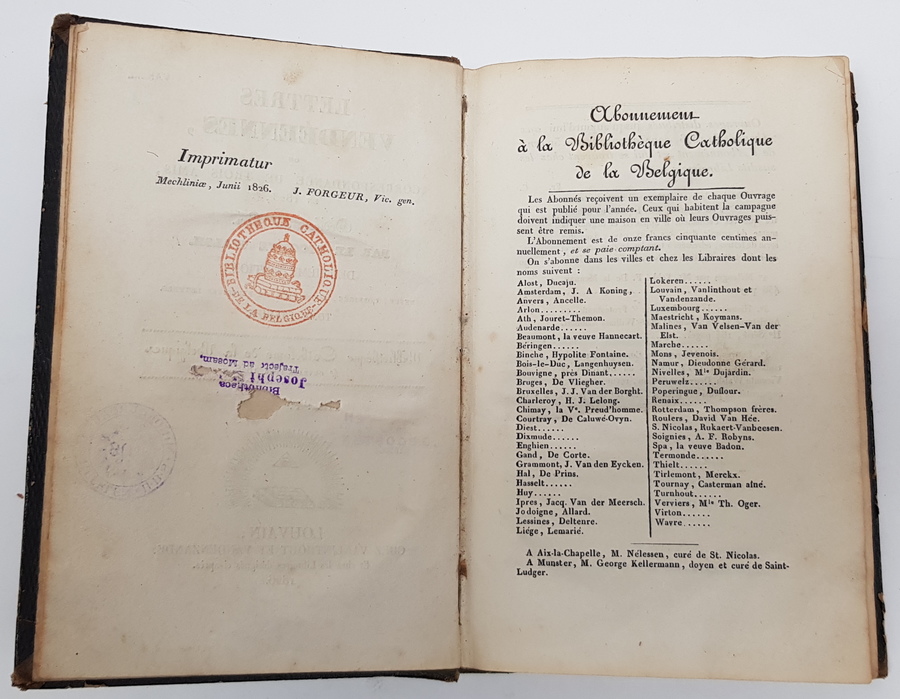 Imprimatur
Mechliniæ, Junii 1826. J. FORGEUR, Vic. gen.
BIBLIOTHEQUE CATHOLIQUE
DE LA BELGIQUE
Bibliotheca
Josephi
Trajecti ad Mosam.
LETTRES
VENDÉENNES,
LOUVAIN,
1826
Abonnement
à la Bibliothèque Catholique
de la Belgique.
Les Abonnés reçoivent un exemplaire de chaque Ouvrage
qui est publié pour l'année. Ceux qui habitent la campagne
doivent indiquer une maison en ville où leurs Ouvrages puis-
sent être remis.
L'Abonnement est de onze francs cinquante centimes an-
nuellement, et se paie comptant.
On s'abonne dans les villes et chez les Libraires dont les
noms suivent :
Alost, Ducaju.
Amsterdam, J. A Koning,
Anvers, Ancelle.
Arlon.........
Ath, Jouret-Themon.
Audenarde......
Beaumont, la veuve Hannecart.
Béringen......
Binche, Hypolite Fontaine.
Bois-le-Duc, Langenhuysen.
Bouvigne, près Dinant......
Bruges, De Vliegher.
Bruxelles, J. J. Van der Borght.
Charleroy, H. J. Lelong.
Chimay, la Ve. Preud'homme.
Courtray, De Caluwé-Ovyn.
Diest......
Dixmude......
Enghien......
Gand, De Corte.
Grammont, J. Van den Eycken.
Hal, De Prins.
Hasselt......
Huy......
Ipres, Jacq. Van der Meersch.
Jodoigne, Allard.
Lessines, Deltenre.
Liége, Lemarié.
Lokeren......
Louvain, Vanlinthout et
Vandenzande.
Luxembourg......
Maestricht, Koymans.
Malines, Van Velsen-Van der
Elst.
Marche......
Mons, Jevenois.
Namur, Dieudonne Gérard.
Nivelles, Mlle Dujardin.
Peruwelz......
Poperingue, Duflour.
Renaix......
Rotterdam, Thompson frères.
Roulers, David Van Hée.
S. Nicolas, Rukaert-Vanbeesen.
Soignies, A. F. Robyns.
Spa, la veuve Badon.
Termonde......
Thielt......
Tirlemont, Merckx.
Tournay, Casterman aîné.
Turnhout......
Verviers, Mlle Th. Oger.
Virton......
Wavre......
A Aix-la-Chapelle, M. Nélessen, curé de St. Nicolas.
A Munster, M. George Kellermann, doyen et curé de Saint-
Ludger.